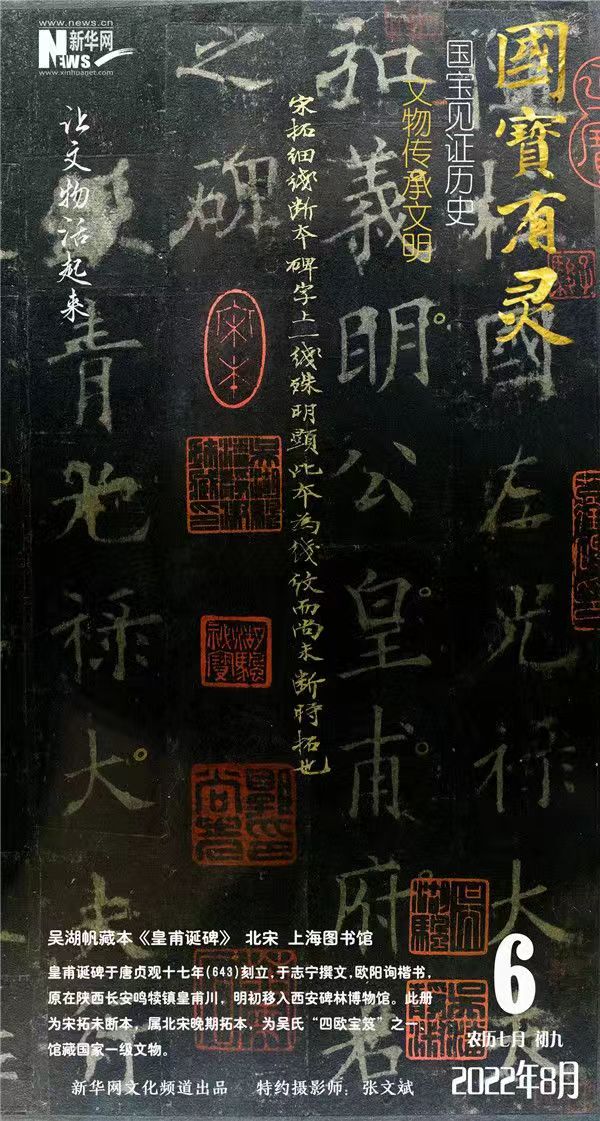 www.news.cn
新华网
NEWS
www.xinhuanet.com
國寳有灵
国宝见证历史
文物传承文明
让文物活起来
柱國左光禄大夫
和義明公皇甫府君
之碑
宋拓细线断本碑字上一线殊明顯此本為线纹而尚未断時拓也
宋本
青光禄大夫
吴湖帆藏本《皇甫诞碑》 北宋 上海图书馆
皇甫诞碑于唐贞观十七年(643)刻立,于志宁撰文,欧阳询楷书,
原在陕西长安鸣犊镇皇甫川，明初移入西安碑林博物馆。此册
为宋拓未断本，属北宋晚期拓本，为吴氏“四欧宝笈”之一、
馆藏国家一级文物。
新华网文化频道出品 特约摄影师：张文斌
6
农历七月 初九
2022年8月